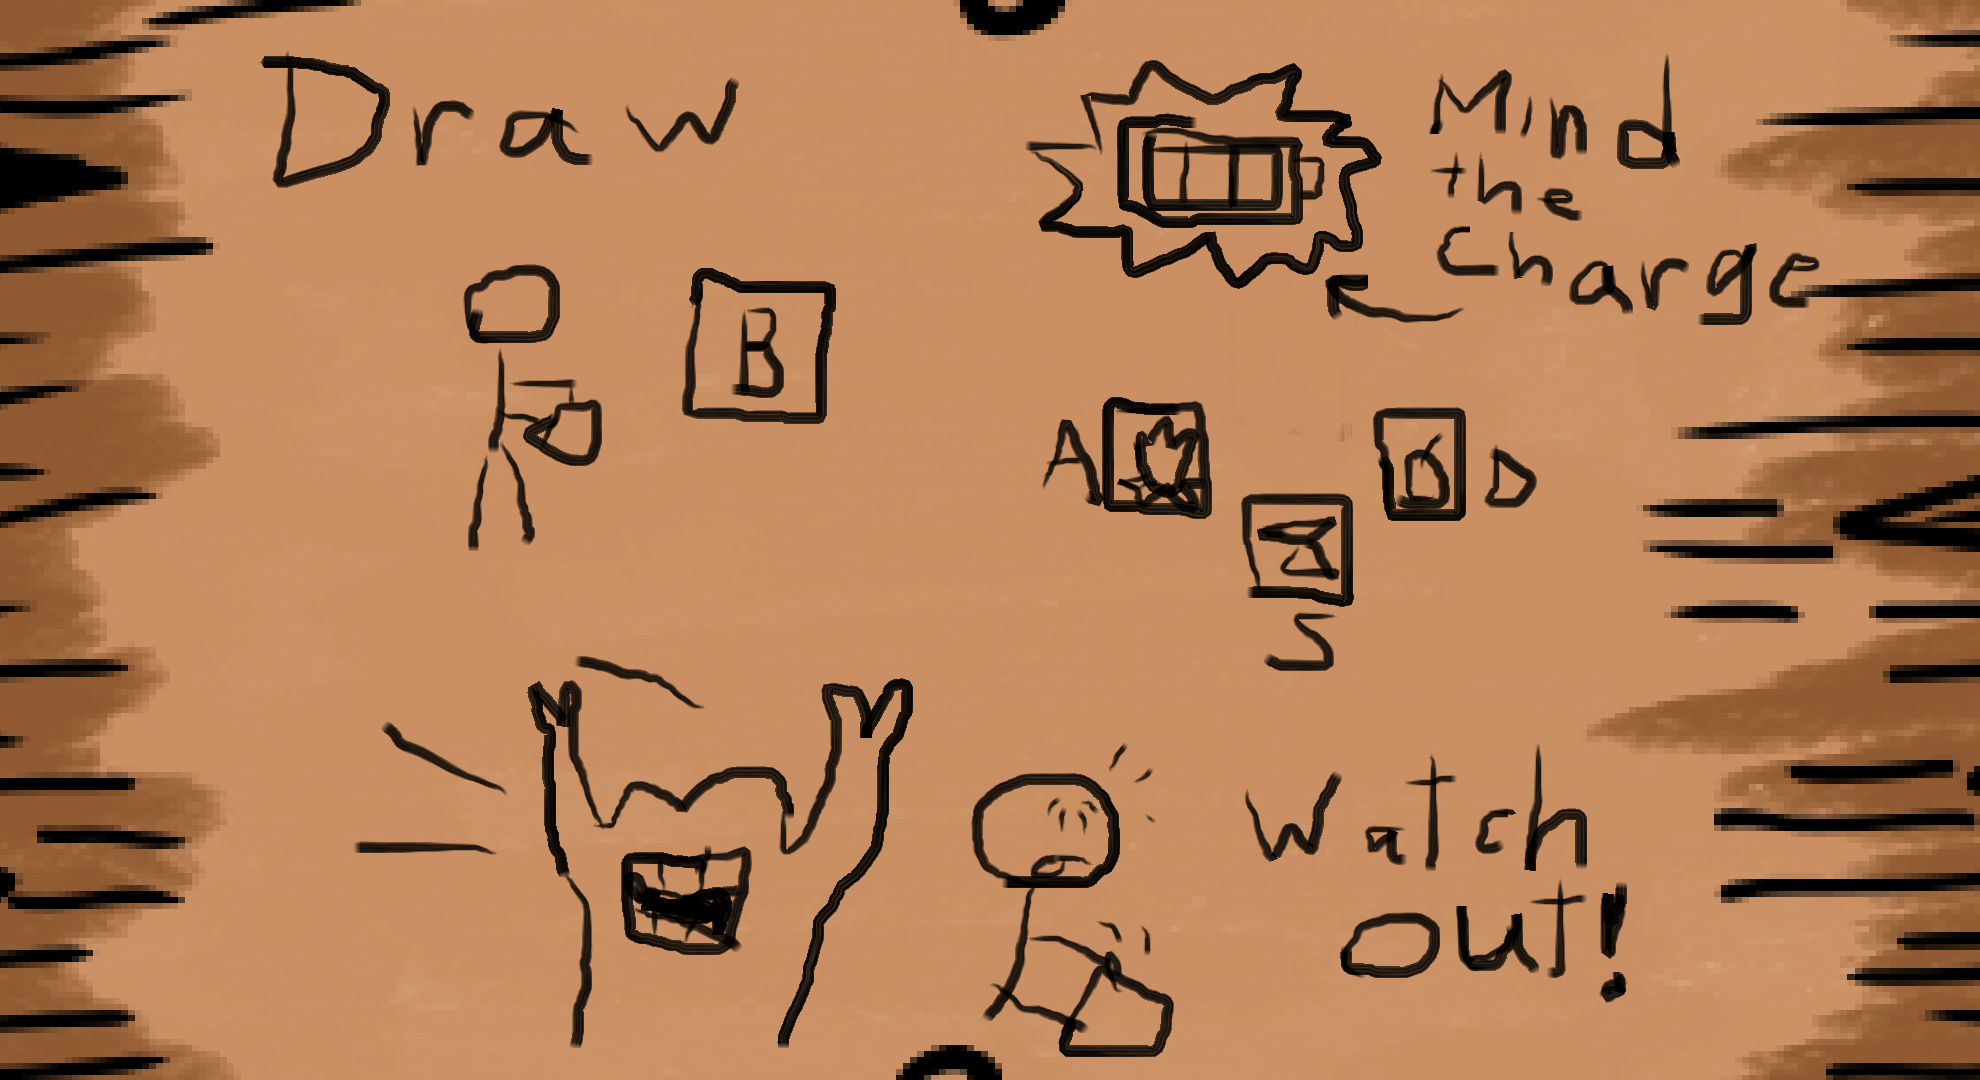 Draw
Mind
the
charge
B
A
D
S
Watch
out!